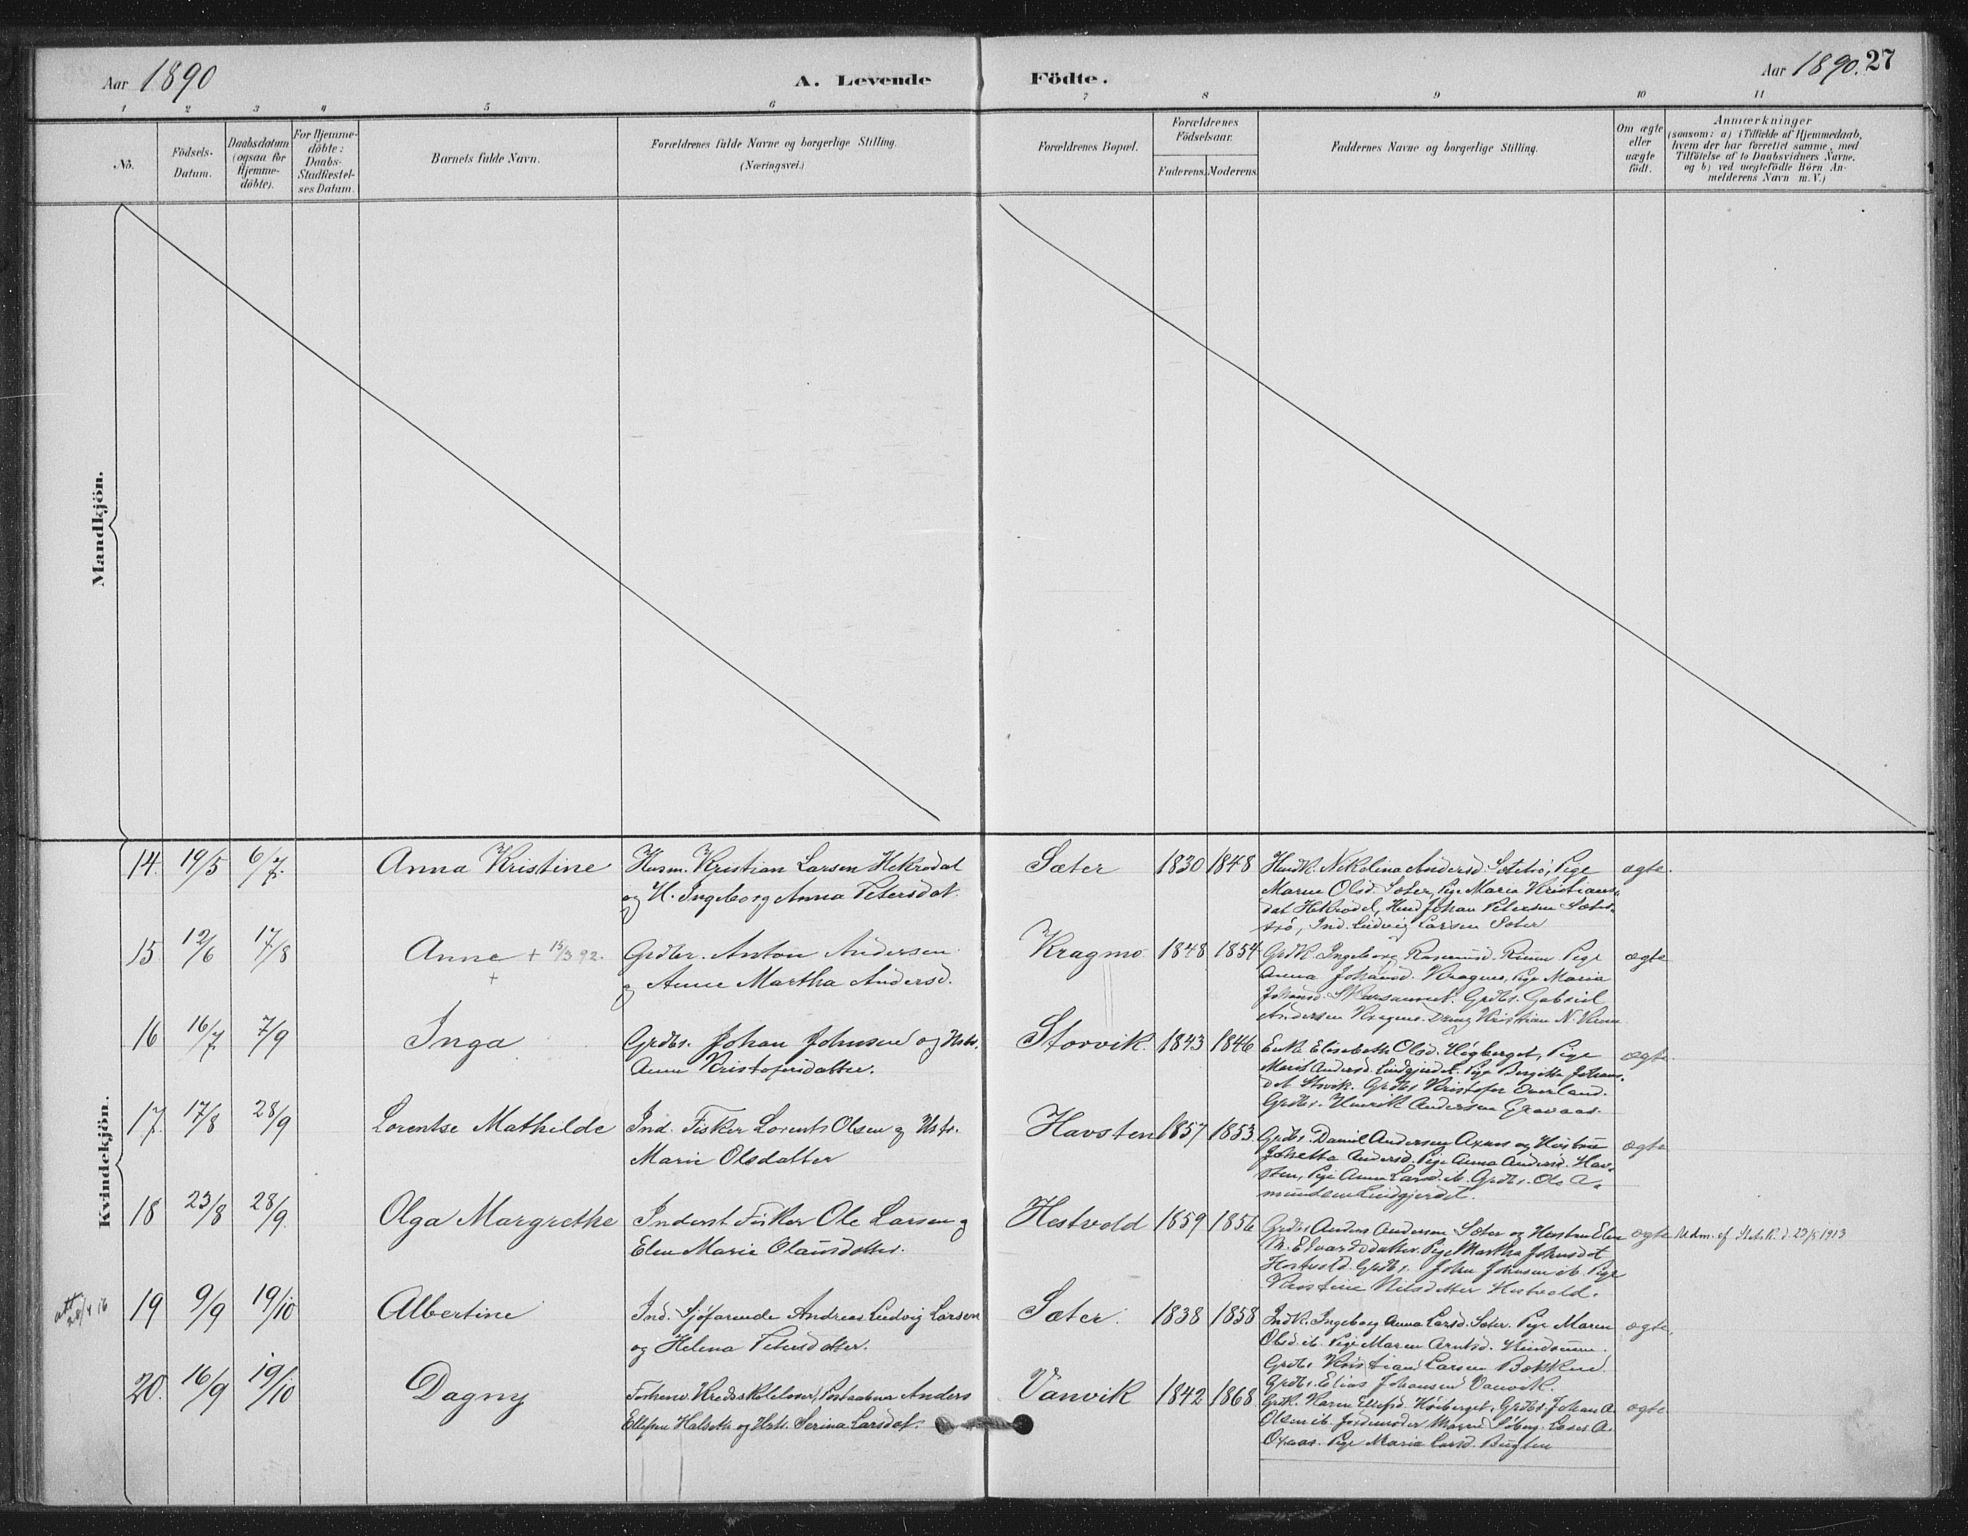 Aar 1890
A. Levende
Födte.
Aar 1890. 27
1 2 3 4 5 6 7 8 9 10 11
Nö.
Födsels-
Datum.
Daabsdatum
(ogsaa for
Hjemme-
döbte).
For Hjemme-
döbte:
Daabs-
Stadfæstel-
ses Datum.
Barnets fulde Navn.
Forældrenes fulde Navne og borgerlige Stilling.
(Næringsvei.)
Forældrenes Bopæl.
Forældrenes
Födselsaar.
Faderens. Moderens.
Faddernes Navne og borgerlige Stilling.
Om ægte
eller
uægte
födt.
Anmærkninger
(saasom: a) i Tilfælde af Hjemmedaab,
hvem der har forrettet samme, med
Tilföielse af to Daabsvidners Navne,
og b) ved uægtefödte Börn An-
melderens Navn m. V.)
Mandkjön.
Kvindekjön.
14. 19/5 6/7. Anna Kristine
Husm. Kristian Larsen Hekrodal
og H. Ingeborg Anna Petersdat.
Sæter 1830 1848
Nikolina Andersd. Pige
Maren Olsd. Sæter, Pige Maria Kristians-
dat Johan Petersen Sæter-
trö, Ind. Ludvig Larsen Sæter
ægte.
15 12/6 17/8 Anne + 15/3 92.
+
Grdbr. Anton Andersen
og Anne Martha Andersd.
Kragmo 1848 1854
Grdk. Ingeborg Rasmusd. Pige
Anna Johansd. Kragmo, Pige Maria
Johansd. Grdbr. Gabriel
Andersen Kragmo. Dreng Kristian N.
ægte
16 16/7 7/9 Inga
Grdbr. Johan Johnsen og Hstr.
Anne Kristofersdatter.
Storvik. 1843 1846
Enke Elisabeth Olsd. Högberget, Pige
Marit Andersd. Lindgjerdet. Pige Bergitte Johans-
dat Storvik. Grdbr. Kristofer Overland.
Grdbr. Henrik Andersen Gravaas.
ægte.
17. 17/8 28/9 Lorentse Mathilde
Ind. Fisker Lorents Olsen og Hstr.
Marie Olsdatter
Havsten 1857 1853.
Grdbr. Daniel Andersen og Hustrue
Andersd. Pige Anna Andersd. Hav-
sten, Pige Anna Larsd. ib. Grdbr. Ole A-
mundsen Lindgjerdet.
ægte
18 23/8 28/9. Olga Margrethe
Inderst Fisker Ole Larsen og
Elen Marie Olausdatter.
Hestvold 1859 1856
Grdbr. Anders Andersen Sæter og Hustru Elen
M. Edvardsdatter. Pige Martha Johnsdat
Hestvold. Grdbr. John Johnsen ib. Pige
Kristine Nilsdatter Hestvold.
ægte
Udm. af Statsk. d. 23/5 1913
att. 28/4 16
19 9/9 19/10 Albertine
Ind. Sjöfarende Andreas Ludvig Larsen
og Helena Petersdatter.
Sæter. 1838 1858
Indk. Ingeborg Anna Larsd. Sæter. Pige Maren
Olsd. ib. Pige Maren Arntsd.
Grdbr. Kristian Larsen
Grdbr. Elias Johansen Vanvik.
ægte.
20. 16/9 19/10 Dagny
Anders
Ellefsen Halseth og Hstr. Serina Larsdat.
Vanvik 1842 1868
Grdk. Karen Ellefsd. Höiberget. Grdbr. Johan A.
Olsen ib. Jordemoder
Pige Maria Larsd. Bugten
ægte.